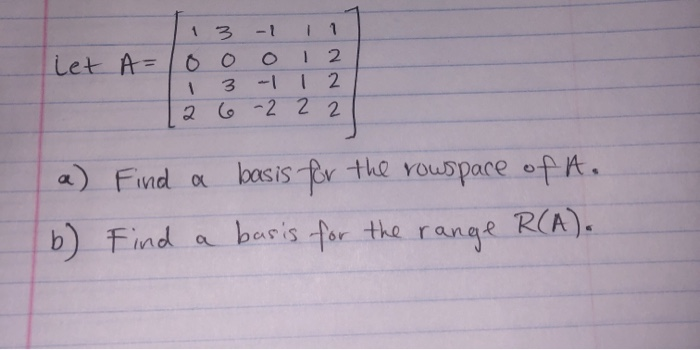 1 3 -1 1 1
Let A = 0 0 0 1 2
1 3 -1 1 2
2 6 -2 2 2
a) Find a basis for the rowspace of A.
b) Find a basis for the range R(A).